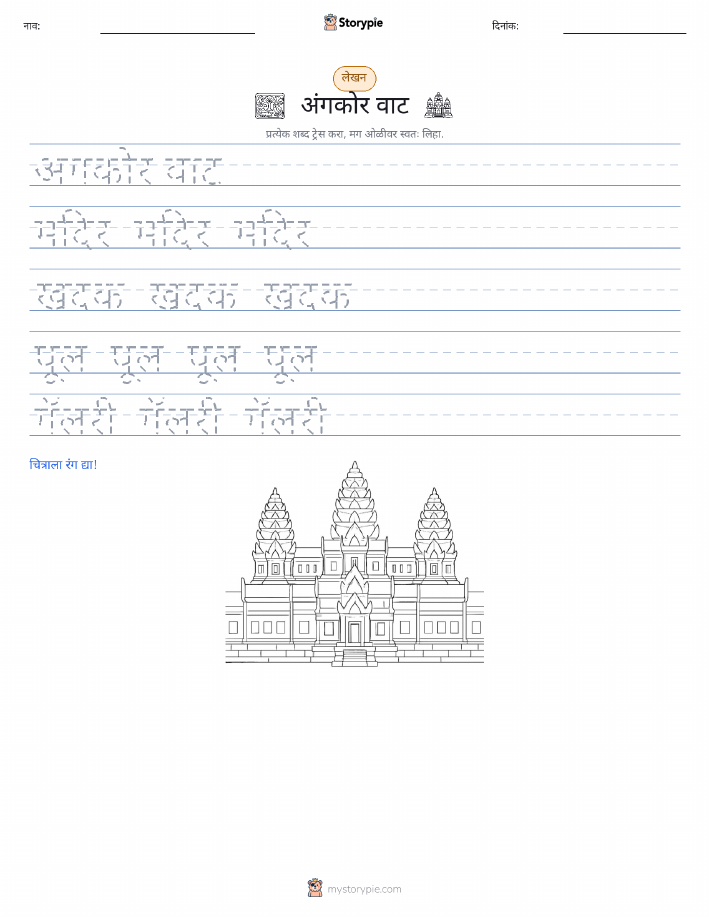 नाव:
Storypie
दिनांक:
लेखन
अंगकोर वाट
प्रत्येक शब्द ट्रेस करा, मग ओळीवर स्वतः लिहा.
अंगकोर वाट
मंदिर मंदिर मंदिर
खंदक खंदक खंदक
पूल पूल पूल पूल
गॅलरी गॅलरी गॅलरी
चित्राला रंग द्या!
mystorypie.com